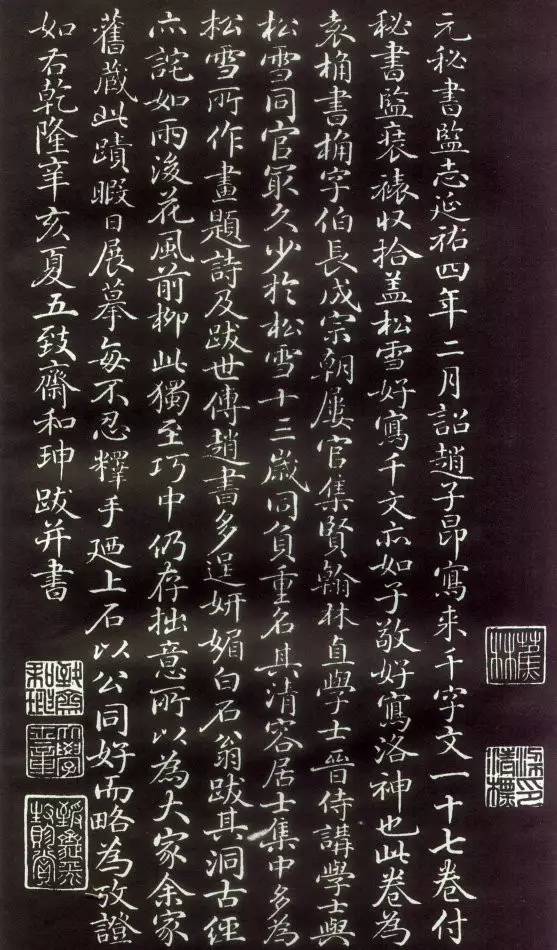 元秘書監志延祐四年二月詔趙子昂寫来千字文一十七卷付
秘書監裝裱収拾盖松雪好寫千文亦如子敬好寫洛神也此卷為
袁桷書桷字伯長成宗朝屢官集賢翰林直學士晉侍講學士與
松雪同官冣久少於松雪十三歲同負重名其清容居士集中多為
松雪所作畫題詩及跋世傳趙書多逞妍媚白石翁跋其洞古經
亦詫如雨後花風前柳此獨至巧中仍存拙意所以為大家余家
舊蔵此蹟暇日展摹每不忍釋手廼上石以公同好而略為攷證
如右乾隆辛亥夏五致齋和珅跋并書
蕉林
致齋和珅